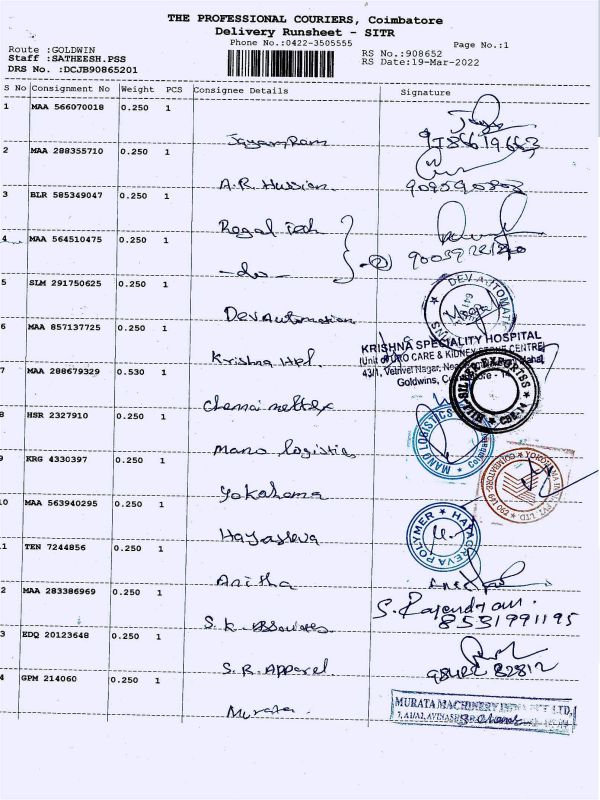 THE PROFESSIONAL COURIERS, Coimbatore
Delivery Runsheet - SITR
Phone No.:0422-3505555
Page No.:1
Route :GOLDWIN
RS No.:908652
Staff :SATHEESH.PSS
RS Date:19-Mar-2022
DRS No. :DCJB90865201
S No Consignment No Weight PCS Consignee Details Signature
1 MAA 566070018 0.250 1
Jayam Ram
2 MAA 288355710 0.250 1
A.R. Hussian
3 BLR 585349047 0.250 1
Regal Tech
4 MAA 564510475 0.250 1
-do-
5 SLM 291750625 0.250 1
DEV AUTOMATE
Dev Automation
6 MAA 857137725 0.250 1
KRISHNA SPECIALITY HOSPITAL
(Unit of URO CARE & KIDNEY STONE CENTRE)
Krishna Hpl.
43/1, Velnvel Nagar,
7 MAA 288679329 0.530 1
Goldwins, Coimbatore - 14
Chennai
8 HSR 2327910 0.250 1
MANO LOGISTICS
Mano logistics
9 KRG 4330397 0.250 1
Yokohama
10 MAA 563940295 0.250 1
HAYAGREVA POLYMER
Hayagreva
11 TEN 7244856 0.250 1
Anitha
2 MAA 283386969 0.250 1
S. Rajendran.
8531991195
S.K. Associates
3 EDQ 20123648 0.250 1
S.R. Apparel
4 GPM 214060 0.250 1
MURATA MACHINERY INDIA PVT LTD,
Murata.